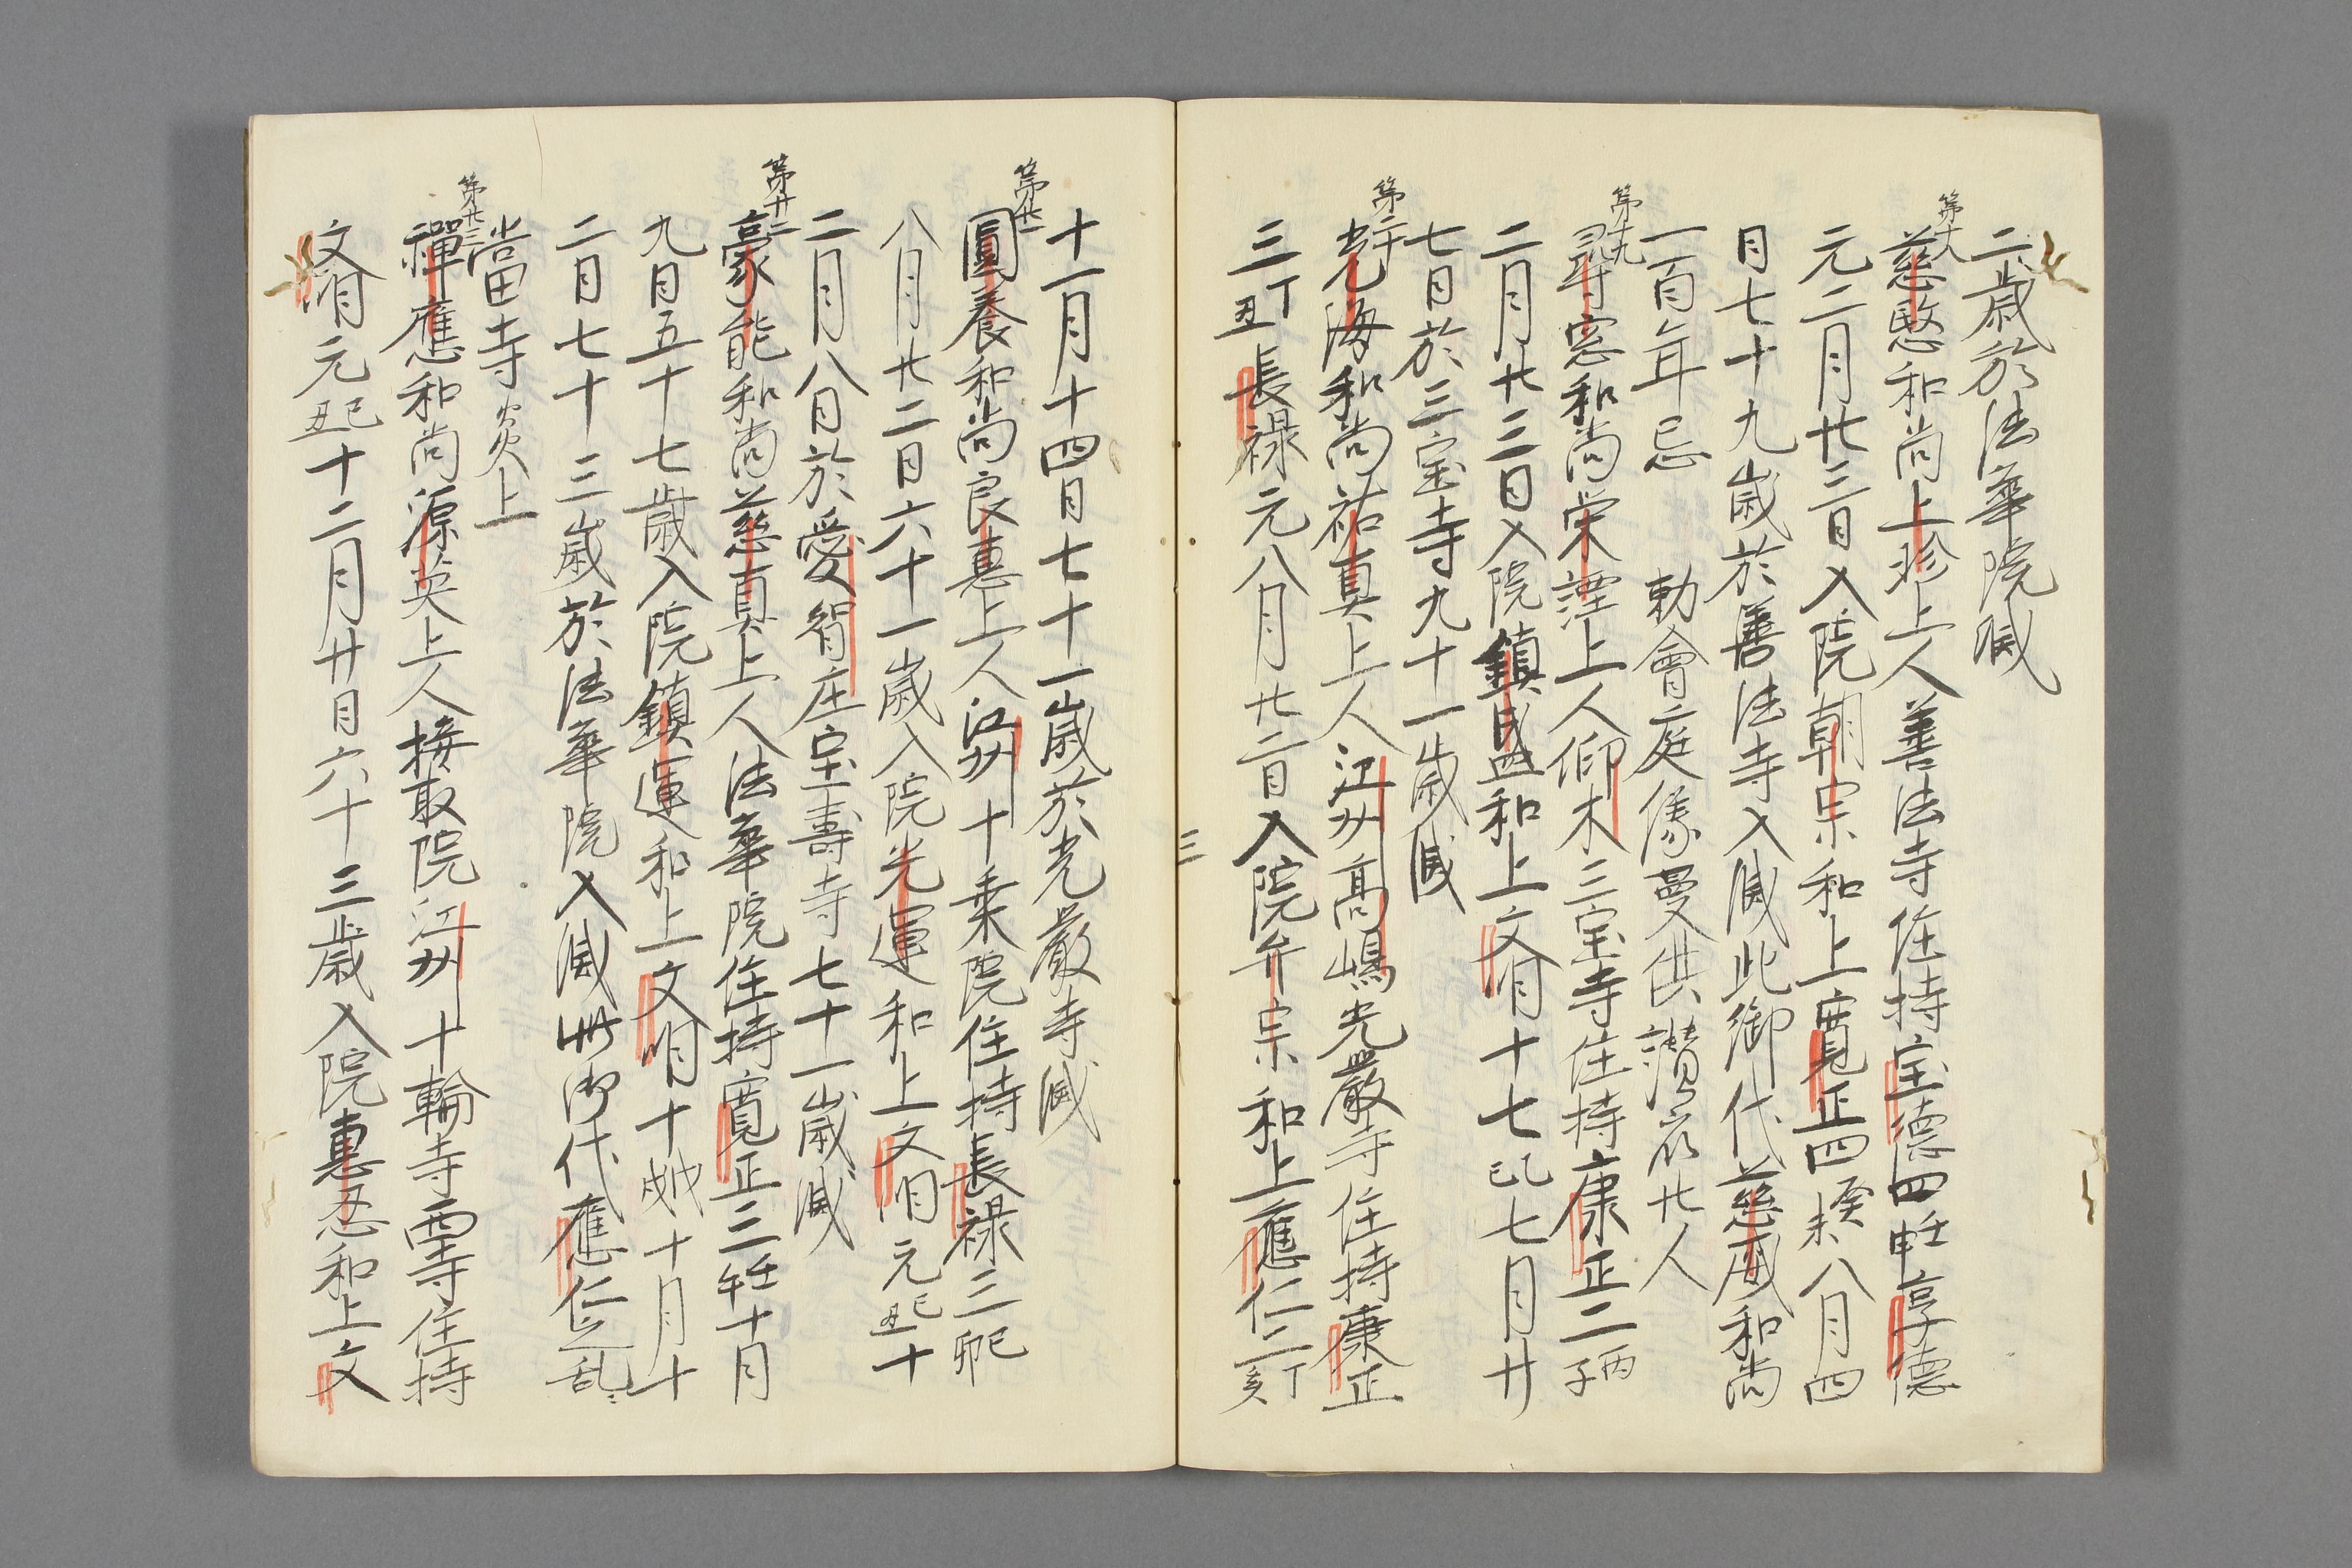 二歳於法華院滅
第十八
慈愍和尚上珍上人善法寺住持宝德四壬申享德
元二月廿三日入院朝宗和上寛正四癸未八月四
日七十九歳於善法寺入滅此御代慈威和尚
一百年忌　勅會庭儀曼供讃衆廿人
第十九
尋窓和尚栄諲上人仰木三宝寺住持康正二丙子
二月廿三日入院鎮盛和上文明十七乙巳七月廿
七日於三宝寺九十一歳滅
第二十
光海和尚祐真上人江州高嶋光嚴寺住持康正
三丁丑長禄元八月廿二日入院弁宗和上應仁二丁亥
三
十一月十四日七十一歳於光嚴寺滅
第廿一
圓養和尚良惠上人江州十乗院住持長禄三己卯
八月廿二日六十一歳入院光運和上文明元己丑十
二月八日於愛智庄宝壽寺七十一歳滅
第廿二
豪能和尚慈真上人法華院住持寛正三壬午十月
九日五十七歳入院鎮運和上文明十戊戌十月十
二日七十三歳於法華院入滅此御代應仁之乱ニ
當寺炎上
第廿三
禪應和尚源英上人接取院江州十輪寺西寺住持
文明元己丑十二月廿日六十三歳入院惠忍和上文